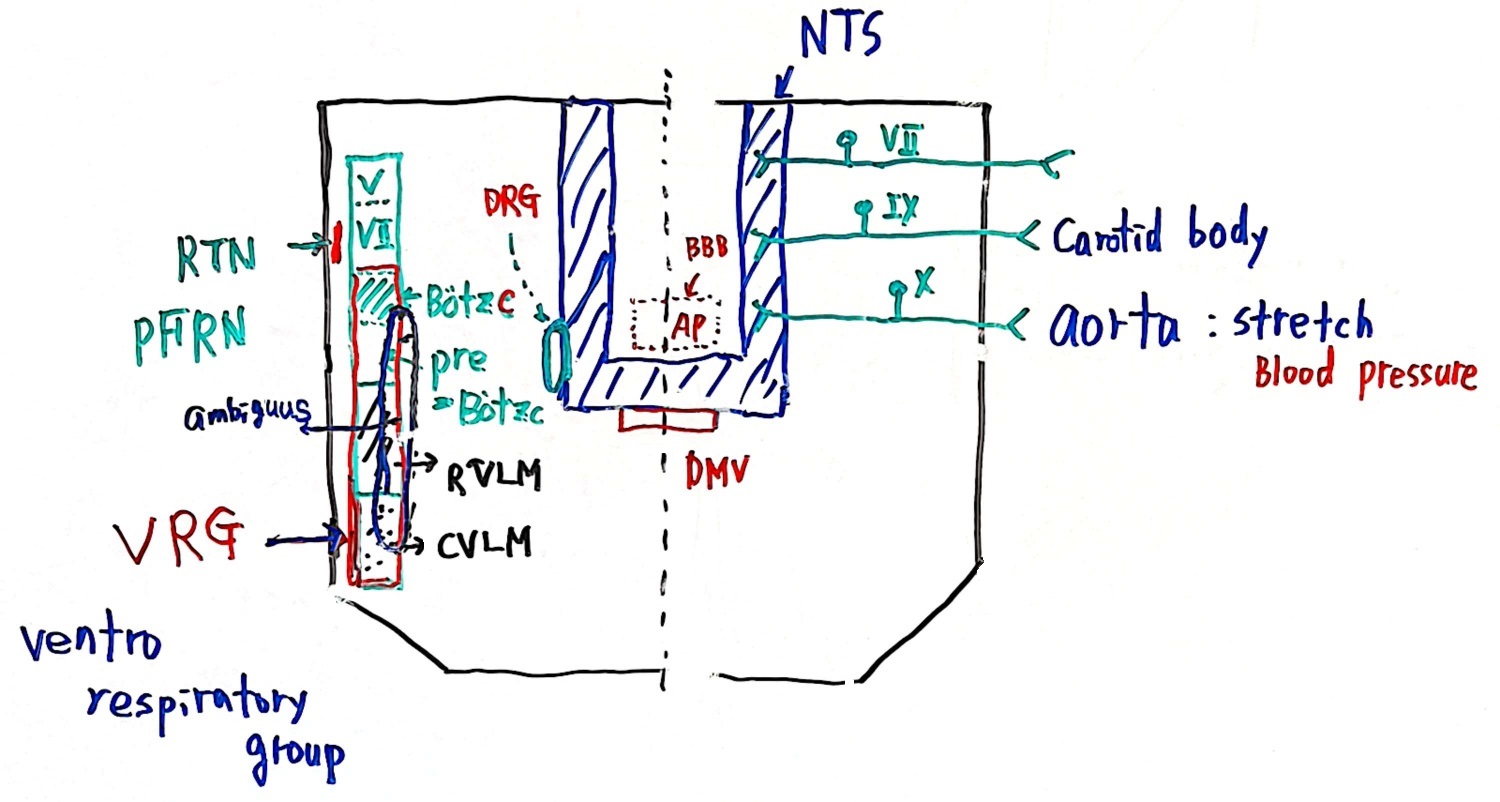 NTS
VII
V
VII
DRG
IX
Carotid body
RTN
BBB
Bötzc
X
AP
aorta : stretch
Blood pressure
PFRN
pre
=Bötzc
ambiguus
RVLM
DMV
VRG
CVLM
ventro
respiratory
group